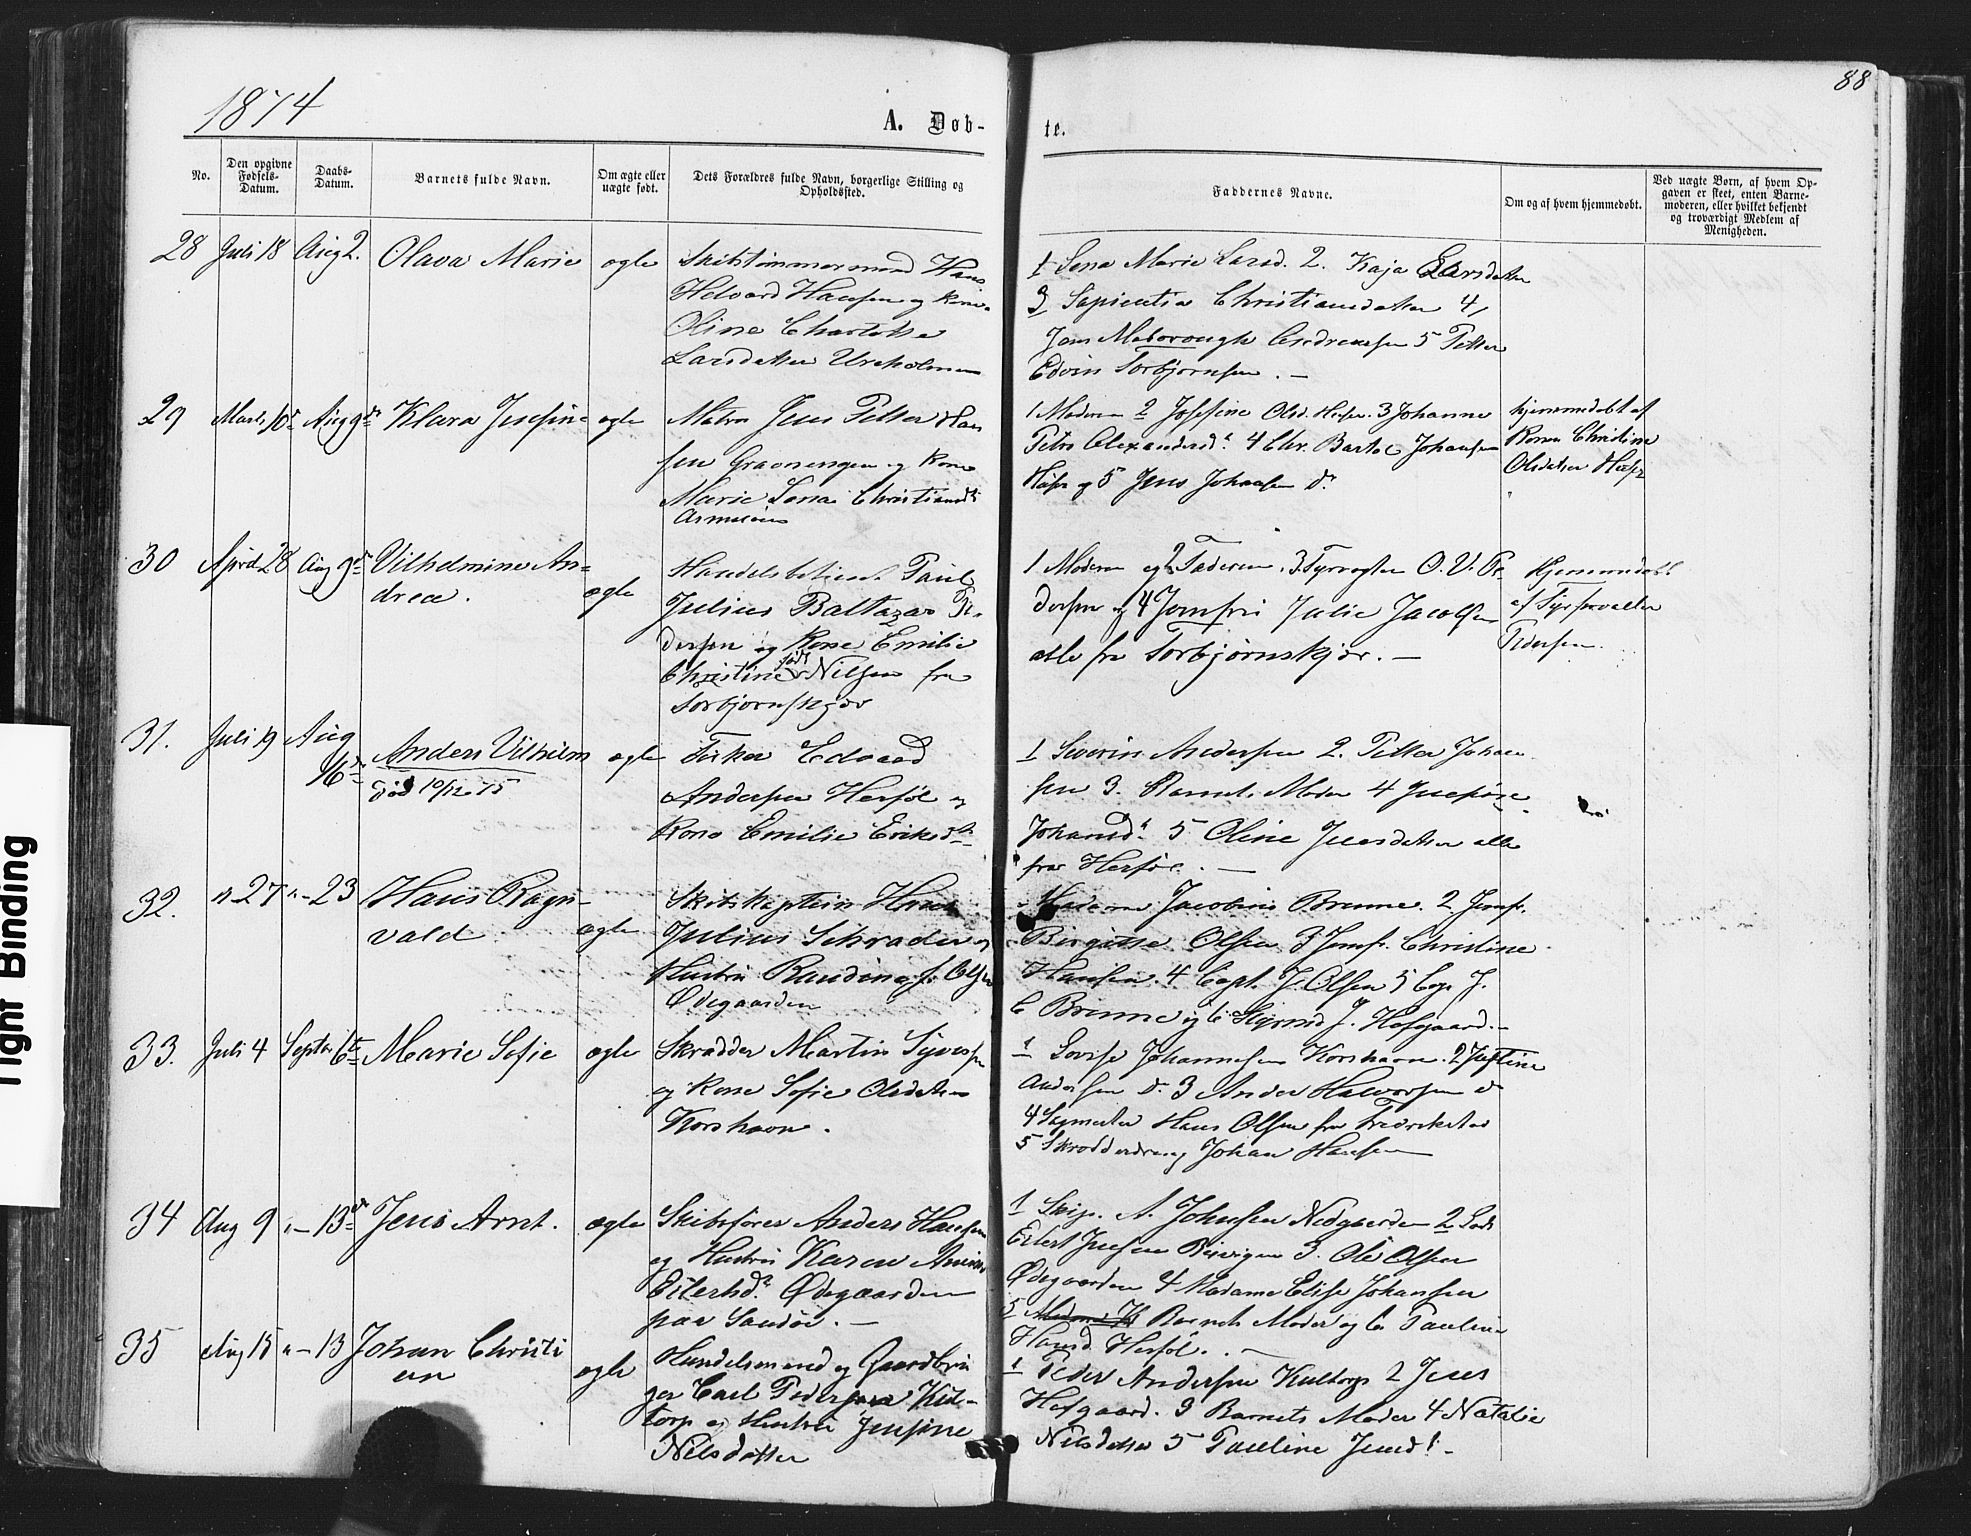 1874
A. Døb-
te.
88
No.
Den opgivne
Fødsels-
Datum.
Daabs-
Datum.
Barnets fulde Navn.
Om ægte eller
uægte født.
Dets Forældres fulde Navn, borgerlige Stilling og
Opholdssted.
Faddernes Navne.
Om og af hvem hjemmedøbt.
Ved uægte Børn, af hvem Op-
gaven er skeet, enten Barne-
moderen, eller hvilket bekjendt
og troværdigt Medlem af
Menigheden.
28 Juli 18 Aug 2. Olava Marie ægte
Skibstømmermand Hans
Helvard Hansen og Kone
Oline Charlotte
Larsdatter Ureholmen
1 Lena Marie Larsd. 2. Kaja Larsdatter
3 Sapientia Christiansdatter 4,
Jans Andreasen 5 Petter
Edvin Torbjørnsen. —
29 Marts 10 Aug 9de Klara Josefine ægte
Matros Jens Petter Han
sen Gravningen og Kone
Marie Lena Christiansdt
Asmaløen
1 Moderen 2 Josefine Olsd. 3 Johanne
Petra Alexandersdr 4 Chr. Bartol Johansen
og 5 Jens Johansen do
hjemmedøbt af
Konen Christine
Olsdatter
30 April 28 Aug 9de Vilhelmine An=
drea.
ægte
Handelsbetient Paul
Julius Baltazar Pe-
dersen og Kone Emilie
Christine født Nilsen fra
Torbjørnskjær
1 Moderen og 2 Faderen. 3. Fyrvogter O. V. Pe-
dersen og 4 Jomfru Julie Jacobsen
alle fra Torbjørnskjær. —
Hjemmedøbt
af Fyrforvalter
Pedersen.
31. Juli 19 Aug
16de
Anders Vilhelm
død 10/12 75
ægte
Fisker Edvard
Andersen Herføl og
Kone Emilie Eriksdtr
1 Severin Andersen 2. Petter Johan
sen 3. Barnets Moder 4 Josefine
Johansdr 5 Oline Jensdatter alle
fra Herføl. —
32. " 27 " - 23 Hans Ragn-
vald
ægte
Skibskaptein Hans
Julius Schrader og
Hustru Randine f. Olsen
Ødegaarden
Madame Jacobine Brunne. 2 Jomf.
Birgitte Olsen 3 Jomf. Christine
Hansen. 4 Capt. J. Olsen 5 Cap. J.
C Brunne og 6 Styrmd J. Hofgaard. —
33. Juli 4 Septbr 6te Marie Sofie ægte
Skrædder Martin Syversen
og Kone Sofie Olsdatter
Korshavn.
1 Lovise Johannesen Korshavn. 2 Justine
Andersen do 3 Anders Halvorsen do
4 Sagmester Hans Olsen fra Fredriksstad
5 Skrædderdreng Johan Hansen
34 Aug 9 " - 13de Jens Arnt. ægte
Skibsfører Anders Hansen
og Hustru Karen
Eilertsdr Ødegaarden
paa Sandø. —
1 Skip. A. Johnsen Nedgaarden 2
Eilert Jensen 3. Ole Olsen
Ødegaarden 4 Madame Elise Johansen
5 Barnets Moder og 6 Pauline
Hansd. Herføl. —
35 Aug 15 " - 13 Johan Christi
an
ægte
Handelsmand og Gaardbru
ger Carl Pedersen Kil-
torp og Hustru Josefine
Nilsdatter
1 Peder Andersen Kultorp 2 Jens
Hofgaard. 3 Barnets Moder 4 Natalie
Nilsdatter 5 Pauline Jensdt. -
Tight Binding